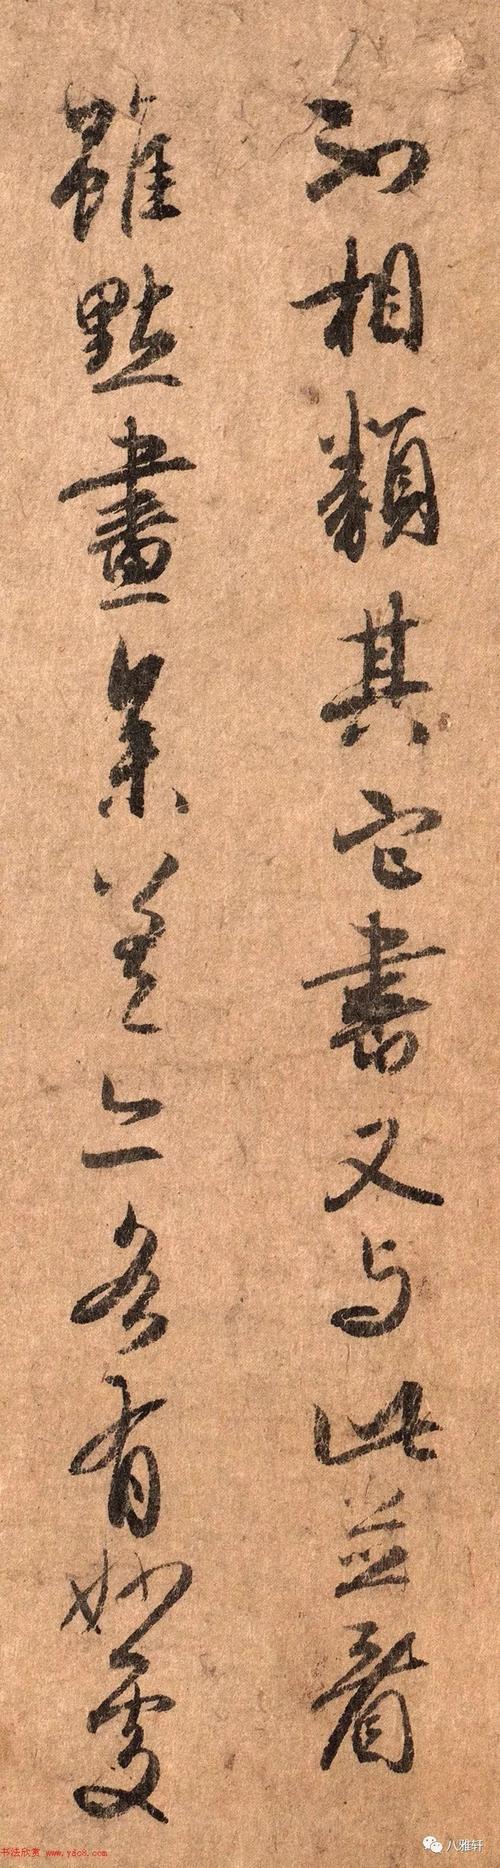 不相類其它書又与此並看
雖點畫參差亦各有妙處
书法欣赏 www.yac8.com
八雅轩